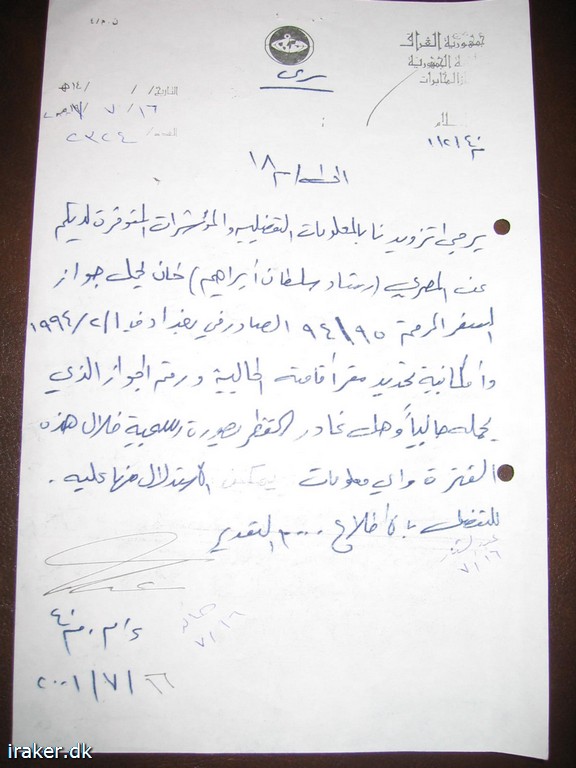 جمهورية العراق
الجمهورية
المخابرات
سري
التاريخ / / / ١٤هـ
١٦/ ٧ /
العدد/ ٢٣٢٤
يرجى تزويدنا بالمعلومات التفصيلية والمؤشرات المتوفرة لديكم
عن المصري (رشاد سلطان ابراهيم) كان يحمل جواز
السفر المرقم ٩٤/٩٥ الصادر في بغداد في ١٩٩٤/٢/١
وامكانية تحديد مقر أقامته الحالية ورقم الجواز الذي
يحمله حالياً وهل غادر القطر بصورة رسمية خلال هذه
الفترة واي معلومات يمكن الاستدلال منها عليه .
للتفضل بالاطلاع .... مع التقدير
١٦/٧
١٦/٧
٢٠٠١/٧/١٦
iraker.dk